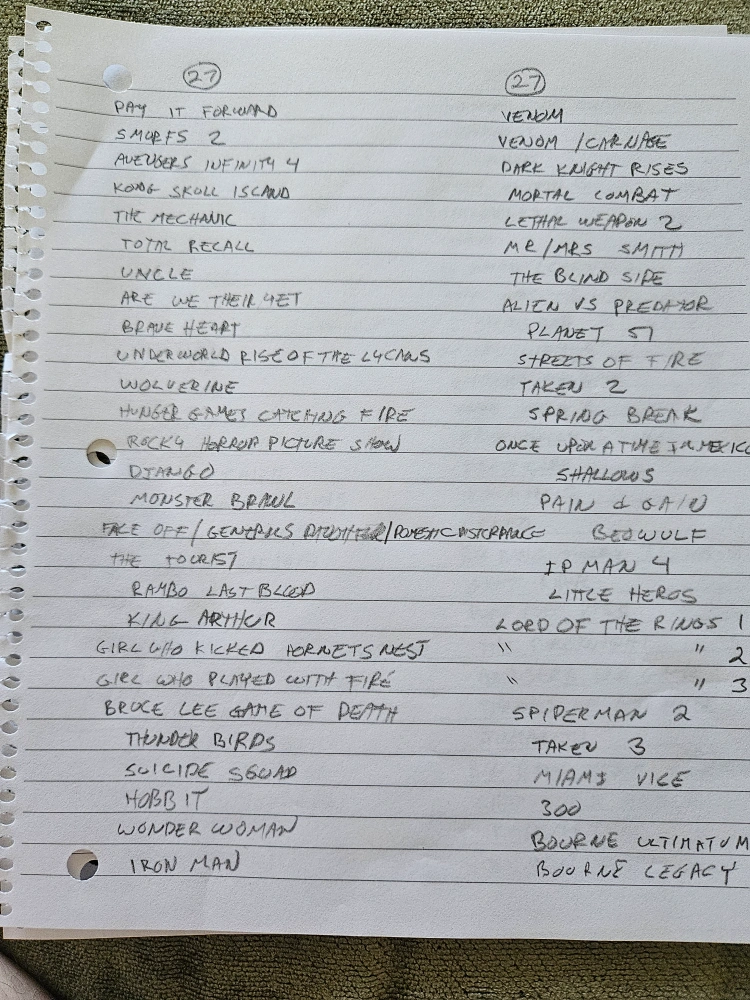 27
PAY IT FORWARD
SMURFS 2
AVENGERS INFINITY 4
KONG SKULL ISLAND
THE MECHANIC
TOTAL RECALL
UNCLE
ARE WE THEIR YET
BRAVE HEART
UNDERWORLD RISE OF THE LYCANS
WOLVERINE
HUNGER GAMES CATCHING FIRE
ROCKY HORROR PICTURE SHOW
DJANGO
MONSTER BRAWL
FACE OFF/GENERALS /DOMESTIC DISTERBANCE
THE TOURIST
RAMBO LAST BLOOD
KING ARTHUR
GIRL WHO KICKED HORNETS NEST
GIRL WHO PLAYED WITH FIRE
BRUCE LEE GAME OF DEATH
THUNDER BIRDS
SUICIDE SQUAD
HOBBIT
WONDER WOMAN
IRON MAN
27
VENOM
VENOM /CARNAGE
DARK KNIGHT RISES
MORTAL COMBAT
LETHAL WEAPON 2
MR/MRS SMITH
THE BLIND SIDE
ALIEN VS PREDATOR
PLANET 51
STREETS OF FIRE
TAKEN 2
SPRING BREAK
ONCE UPON A TIME IN MEXICO
SHALLOWS
PAIN & GAIN
BEOWULF
IP MAN 4
LITTLE HEROS
LORD OF THE RINGS 1
" " 2
" " 3
SPIDERMAN 2
TAKEN 3
MIAMI VICE
300
BOURNE ULTIMATUM
BOURNE LEGACY